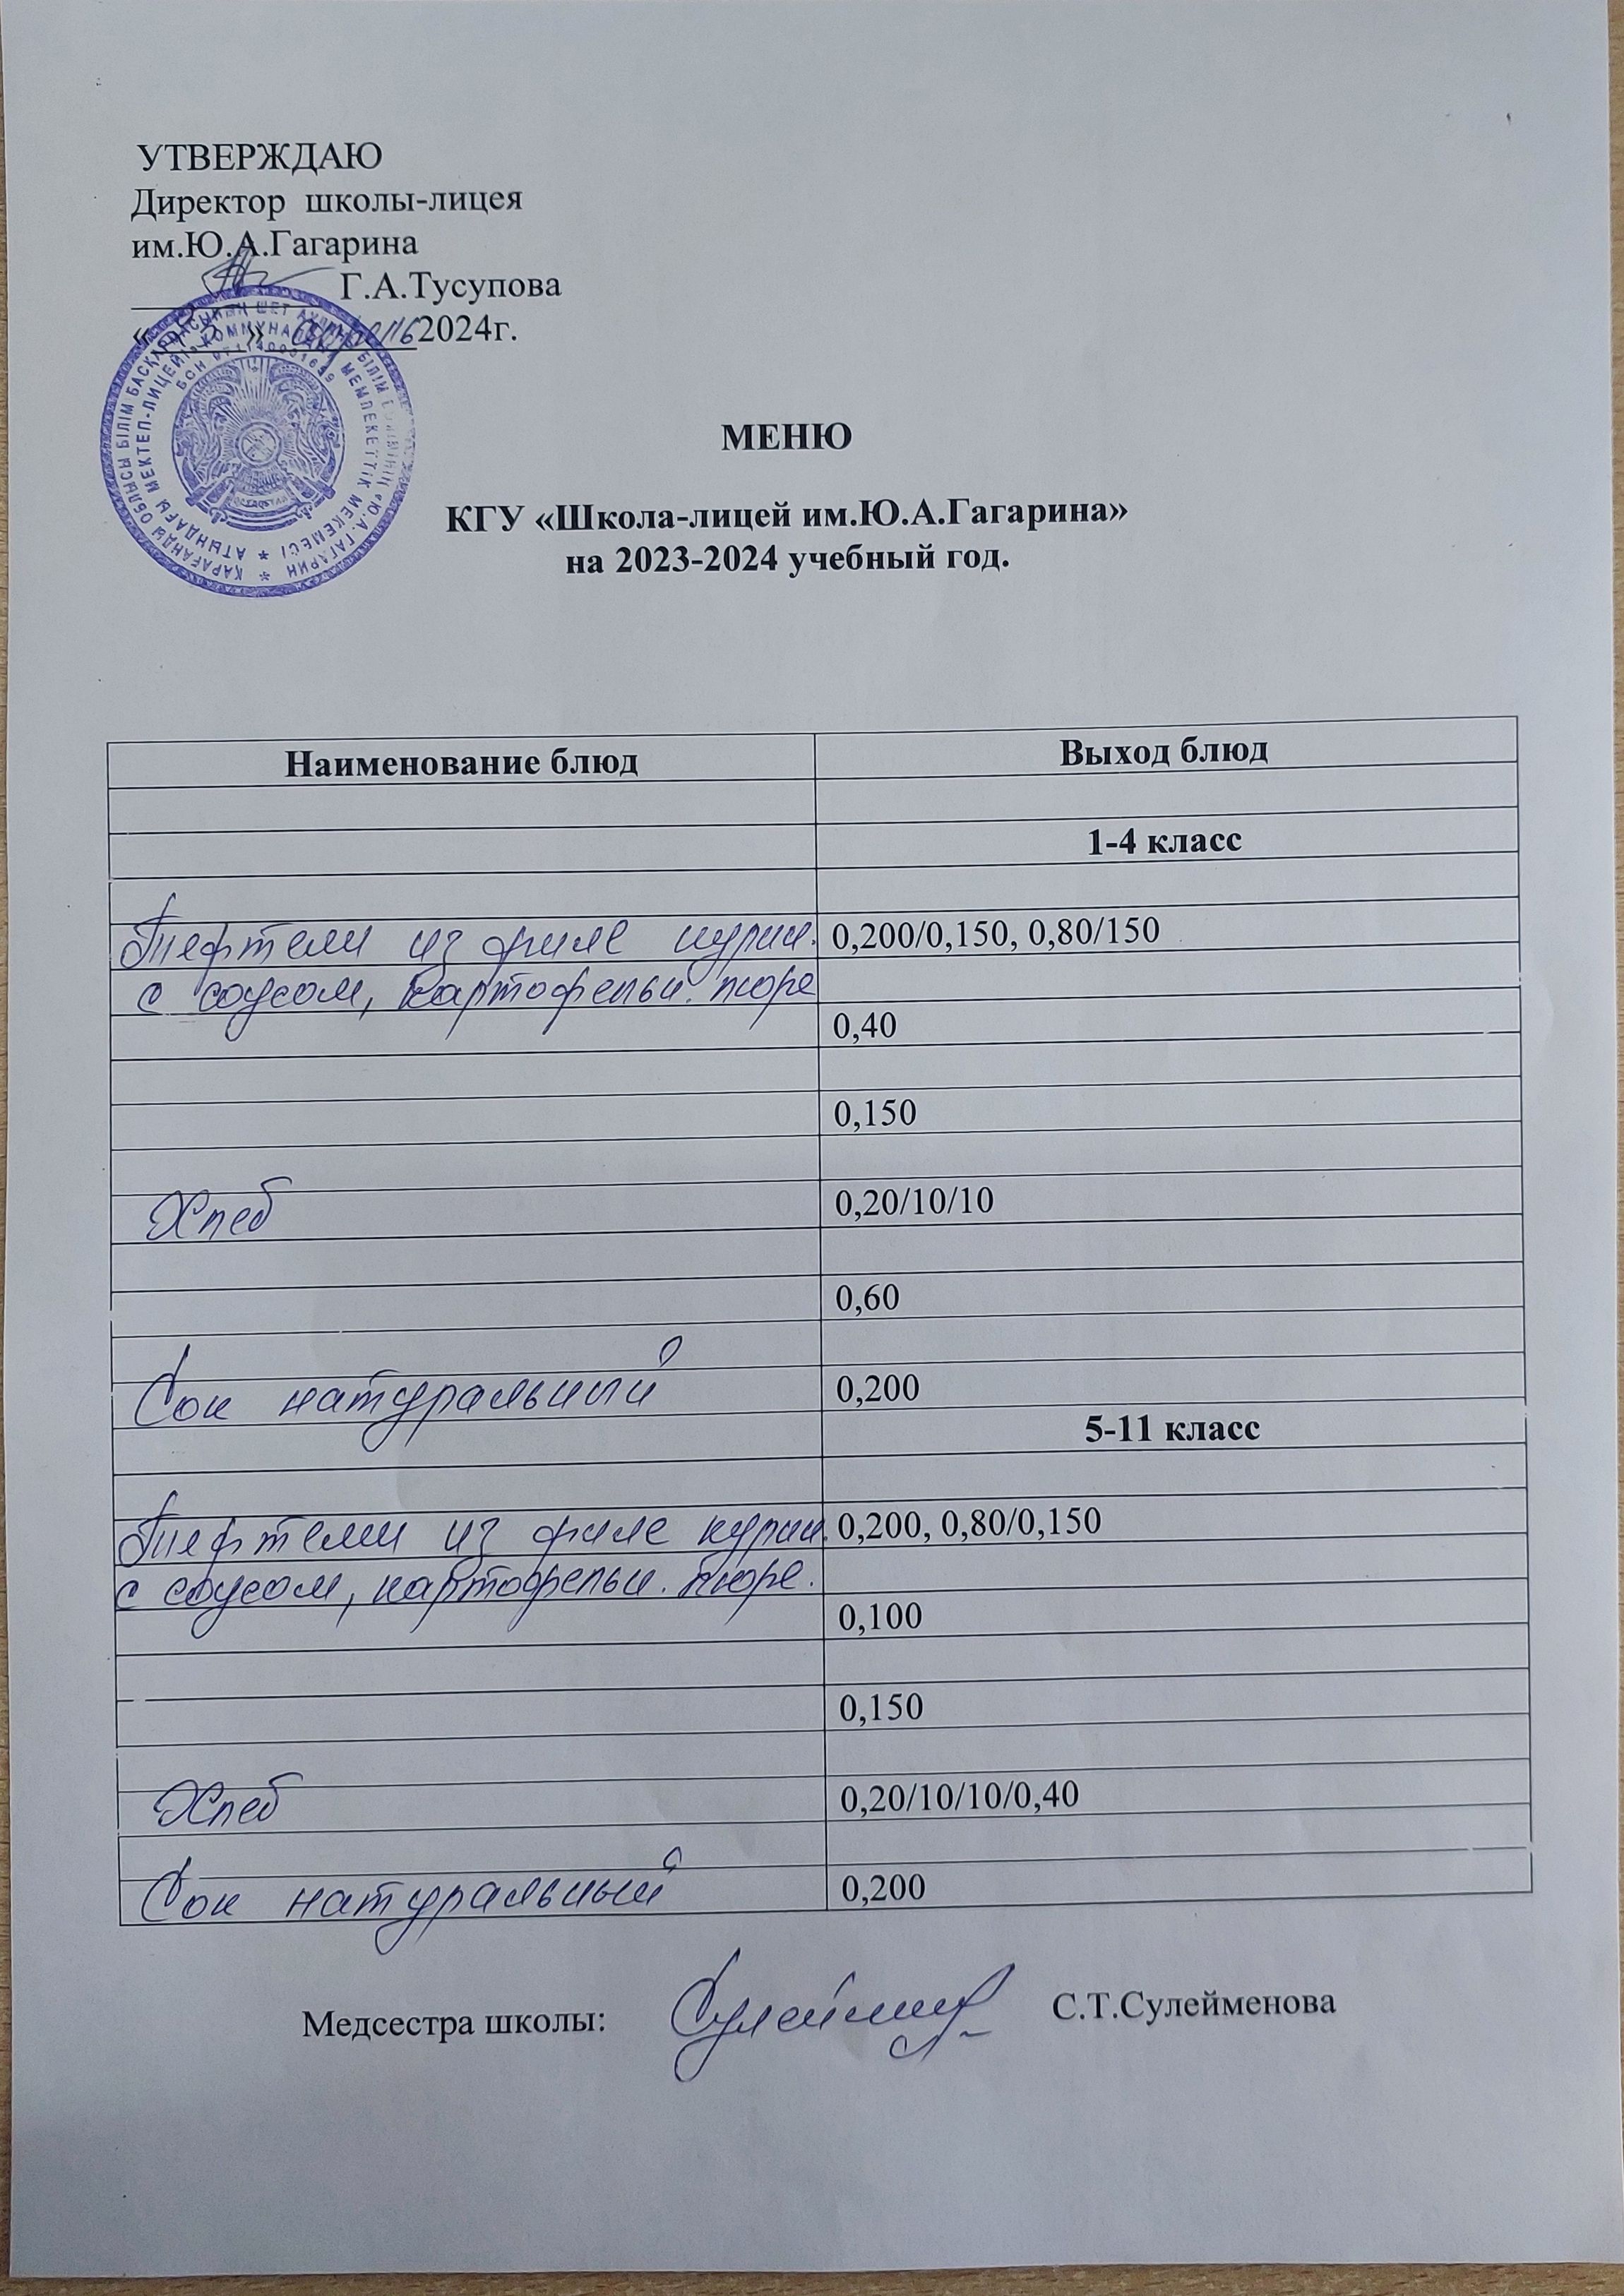 УТВЕРЖДАЮ
Директор школы-лицея
им.Ю.А.Гагарина
Г.А.Тусупова
« » апрель 2024г.
ҚАРАҒАНДЫ ОБЛЫСЫ БІЛІМ БАСҚАРМАСЫНЫҢ ШЕТ АУДАНЫ БІЛІМ БӨЛІМІНІҢ «Ю.А. ГАГАРИН
АТЫНДАҒЫ МЕКТЕП-ЛИЦЕЙІ» КОММУНАЛДЫҚ МЕМЛЕКЕТТІК МЕКЕМЕСІ
БСН
МЕНЮ
КГУ «Школа-лицей им.Ю.А.Гагарина»
на 2023-2024 учебный год.
Наименование блюд Выход блюд
1-4 класс
Тефтели из филе курин. 0,200/0,150, 0,80/150
с соусом, картофельн. пюре
0,40
0,150
Хлеб 0,20/10/10
0,60
Сок натуральный 0,200
5-11 класс
Тефтели из филе курин. 0,200, 0,80/0,150
с соусом, картофельн. пюре.
0,100
0,150
Хлеб 0,20/10/10/0,40
Сок натуральный 0,200
Медсестра школы: С.Т.Сулейменова